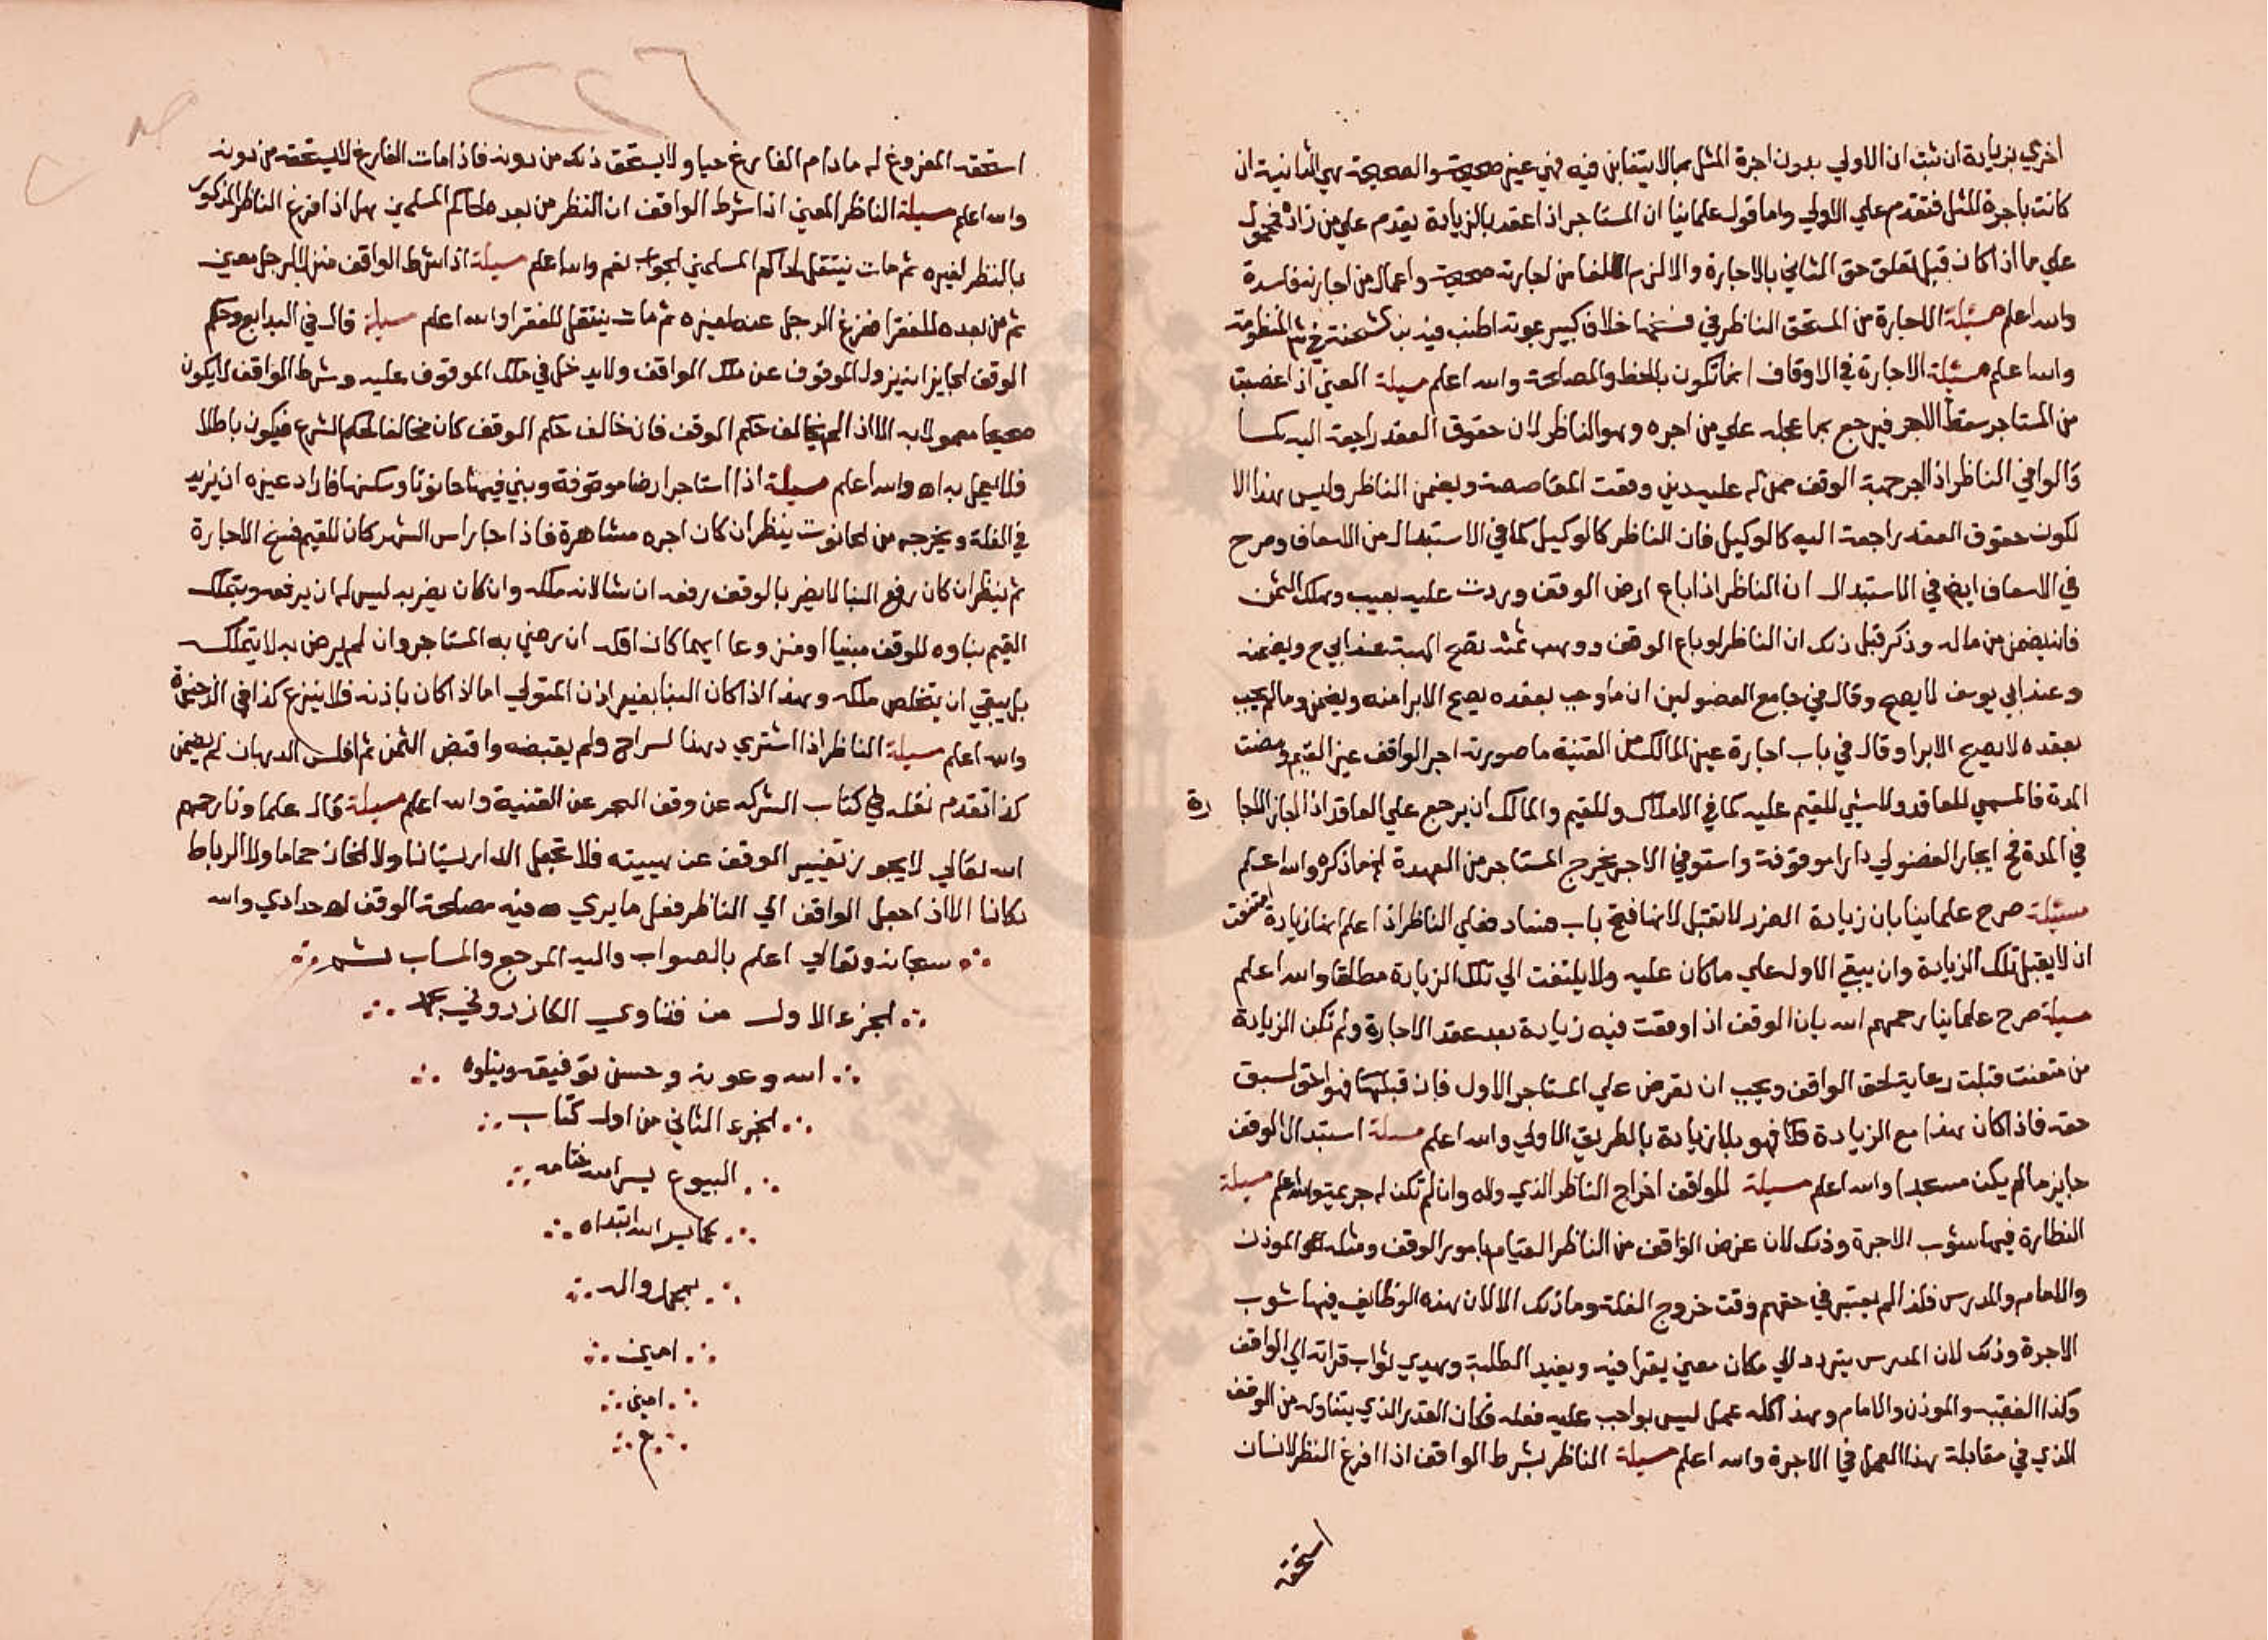 اخري بزيادة ان ثبت ان الاولي بدون اجرة المثل بما لا يتغابن فيه فهي غير صحيحة والصحيحة هي الثانية ان
كانت باجرة المثل فتقدم علي الاولي واما قول علماينا ان المستاجر اذا عقد بالزيادة يقدم علي من زاد فمحمول
علي ما اذا كان قبل تعلق حق الثاني بالاجارة والا لزم الغا من اجارته صحيحة واعمال من اجارته فاسدة
والله اعلم مسئلة الاجارة من المستحق الناظر في فسخها خلاف كبير بموته اطنب فيه بن شحنة في المنظومة
والله اعلم مسئلة الاجارة في الاوقاف انما تكون بالحظ والمصلحة والله اعلم مسيلة العين اذا غصبت
من المستاجر سقط الاجر فيرجع بما عجله علي من اجره وهو الناظر لان حقوق العقد راجعة اليه
قالوا في الناظر اذا اجر جهة الوقف ممن له عليه دين وقعت المقاصصة ويضمن الناظر وليس هذا الا
لكون حقوق العقد راجعة اليه كالوكيل فان الناظر كالوكيل كما في الاستبدال من الاسعاف وصرح
في الاسعاف ايضا في الاستبدال ان الناظر اذا باع ارض الوقف وردت عليه بعيب وهلك الثمن
فانه يضمن من ماله وذكر قبل ذلك ان الناظر لو باع الوقف ووهب ثمنه تصح الهبة عند ابي ح ويضمنه
وعند ابي يوسف لا يصح وقال في جامع الفصولين ان ما وجب بعقده يصح الابرا منه ويضمن وما لم يجب
بعقده لا يصح الابرا وقال في باب اجارة غير المالك من القنية ما صورته اجر الواقف غير القيم ومضت
المدة فالمسمي للعاقد ولا شيي للقيم عليه كما في الاملاك وللقيم والمالك ان يرجع علي العاقد اذا اجاز الاجا رة
في المدة فح ايجار الفضولي دارا موقوفة واستوفي الاجر يخرج المستاجر من العهدة ما ذكره والله اعلم
مسئلة صرح علماينا بان زيادة الضرر لا تقبل لانها فتح باب فساد فعلي الناظر اذا علم انها زيادة متعنت
ان لا يقبل تلك الزيادة وان يبقي الاول علي ما كان عليه ولا يلتفت الي تلك الزيادة مطلقا والله اعلم
مسيلة صرح علماينا رحمهم الله بان الوقف اذا وقعت فيه زيادة بعد عقد الاجارة ولم تكن الزيادة
من متعنت قبلت رعاية لحق الواقف ويجب ان تعرض علي المستاجر الاول فان قبلها فهو احق لسبق
حقه فاذا كان هذا مع الزيادة فلا فهو بلا زيادة بالطريق الاولي والله اعلم مسلة استبدال الوقف
جايز ما لم يكن مسجدا والله اعلم مسيلة للواقف اخراج الناظر الذي ولاه وان لم تكن له جريمة والله اعلم مسيلة
النظارة فيها شوب الاجرة وذلك لان غرض الواقف من الناظر القيام بامور الوقف ومثله الموذن
والامام والمدرس فلذا لم يعتبر في حقهم وقت خروج الغلة وما ذلك الا لان هذه الوظايف فيها شوب
الاجرة وذلك لان المدرس يتردد الي مكان معين يقرا فيه ويفيد الطلبة ويهدي ثواب قراته الي الواقف
وكذا الفقيه والموذن والامام وهذا كله عمل ليس بواجب عليه فعله فكان القدر الذي يتناوله من الوقف
الذي في مقابلة هذا العمل في الاجرة والله اعلم مسيلة الناظر بشرط الواقف اذا افرغ النظر لانسان
استحقه
٢٢٦
استحقه المفروغ له مادام الفارغ حيا ولا يستحق ذلك من دونه فاذا مات الفارغ لا يستحقه من دونه
والله اعلم مسيلة الناظر المعين اذا شرط الواقف ان النظر من بعد لحاكم المسلمين هل اذا افرغ الناظر المذكور
بالنظر لغيره ثم مات ينتقل لحاكم المسلمين الجواب نعم والله اعلم مسيلة اذا شرط الواقف منزلا لرجل معين
ثم من بعده للفقرا ففرغ الرجل عنه لغيره ثم مات ينتقل للفقرا والله اعلم مسيلة قال في البدايع وحكم
الوقف الجايز انه يزول الموقوف عن ملك الواقف ولا يدخل في ملك الموقوف عليه وشرط الواقف لا يكون
صحيحا معمولا به الا اذا لم يخالف حكم الوقف فان خالف حكم الوقف كان مخالفا لحكم الشرع فيكون باطلا
فلا يعمل به اه والله اعلم مسيلة اذا استاجر ارضا موقوفة وبني فيها حانوتا وسكنها فاراد غيره ان يزيد
في الغلة ويخرجه من الحانوت ينظر ان كان اجره مشاهرة فاذا جا راس الشهر كان للقيم فسخ الاجارة
ثم ينظر ان كان رفع البنا لا يضر بالوقف رفعه ان شا لانه ملكه وان كان يضر به ليس له ان يرفعه ويتملك
القيم بناوه للوقف مبنيا او منزوعا ايهما كان اقل ان رضي به المستاجر وان لم يرض به لا يتملك
بل يبقي ان يتخلص ملكه وهذا اذا كان البنا بغير اذن المتولي اما اذا كان باذنه فلا ينزع كذا في الذخيرة
والله اعلم مسيلة الناظر اذا اشتري دهنا لسراج ولم يقبضه واقبض الثمن ثم افلس الدهان لم يضمن
كذا تقدم نقله في كتاب الشركه عن وقف البحر عن القنية والله اعلم مسيلة قال علماونا رحمهم
الله تعالي لا يجوز تغيير الوقف عن هييته فلا تجعل الدار بستانا ولا الخان حماما ولا الرباط
دكانا الا اذا جعل الواقف الي الناظر فعل ما يري فيه مصلحة الوقف اه حدادي والله
سبحانه وتعالي اعلم بالصواب واليه المرجع والماب تم
الجزء الاول من فتاوي الكازروني بحمد
الله وعونه وحسن توفيقه ويتلوه
الجزء الثاني من اول كتاب
البيوع يسر الله ختامه
كما يسر الله ابتداه
بمحمد واله
امين
امين
م